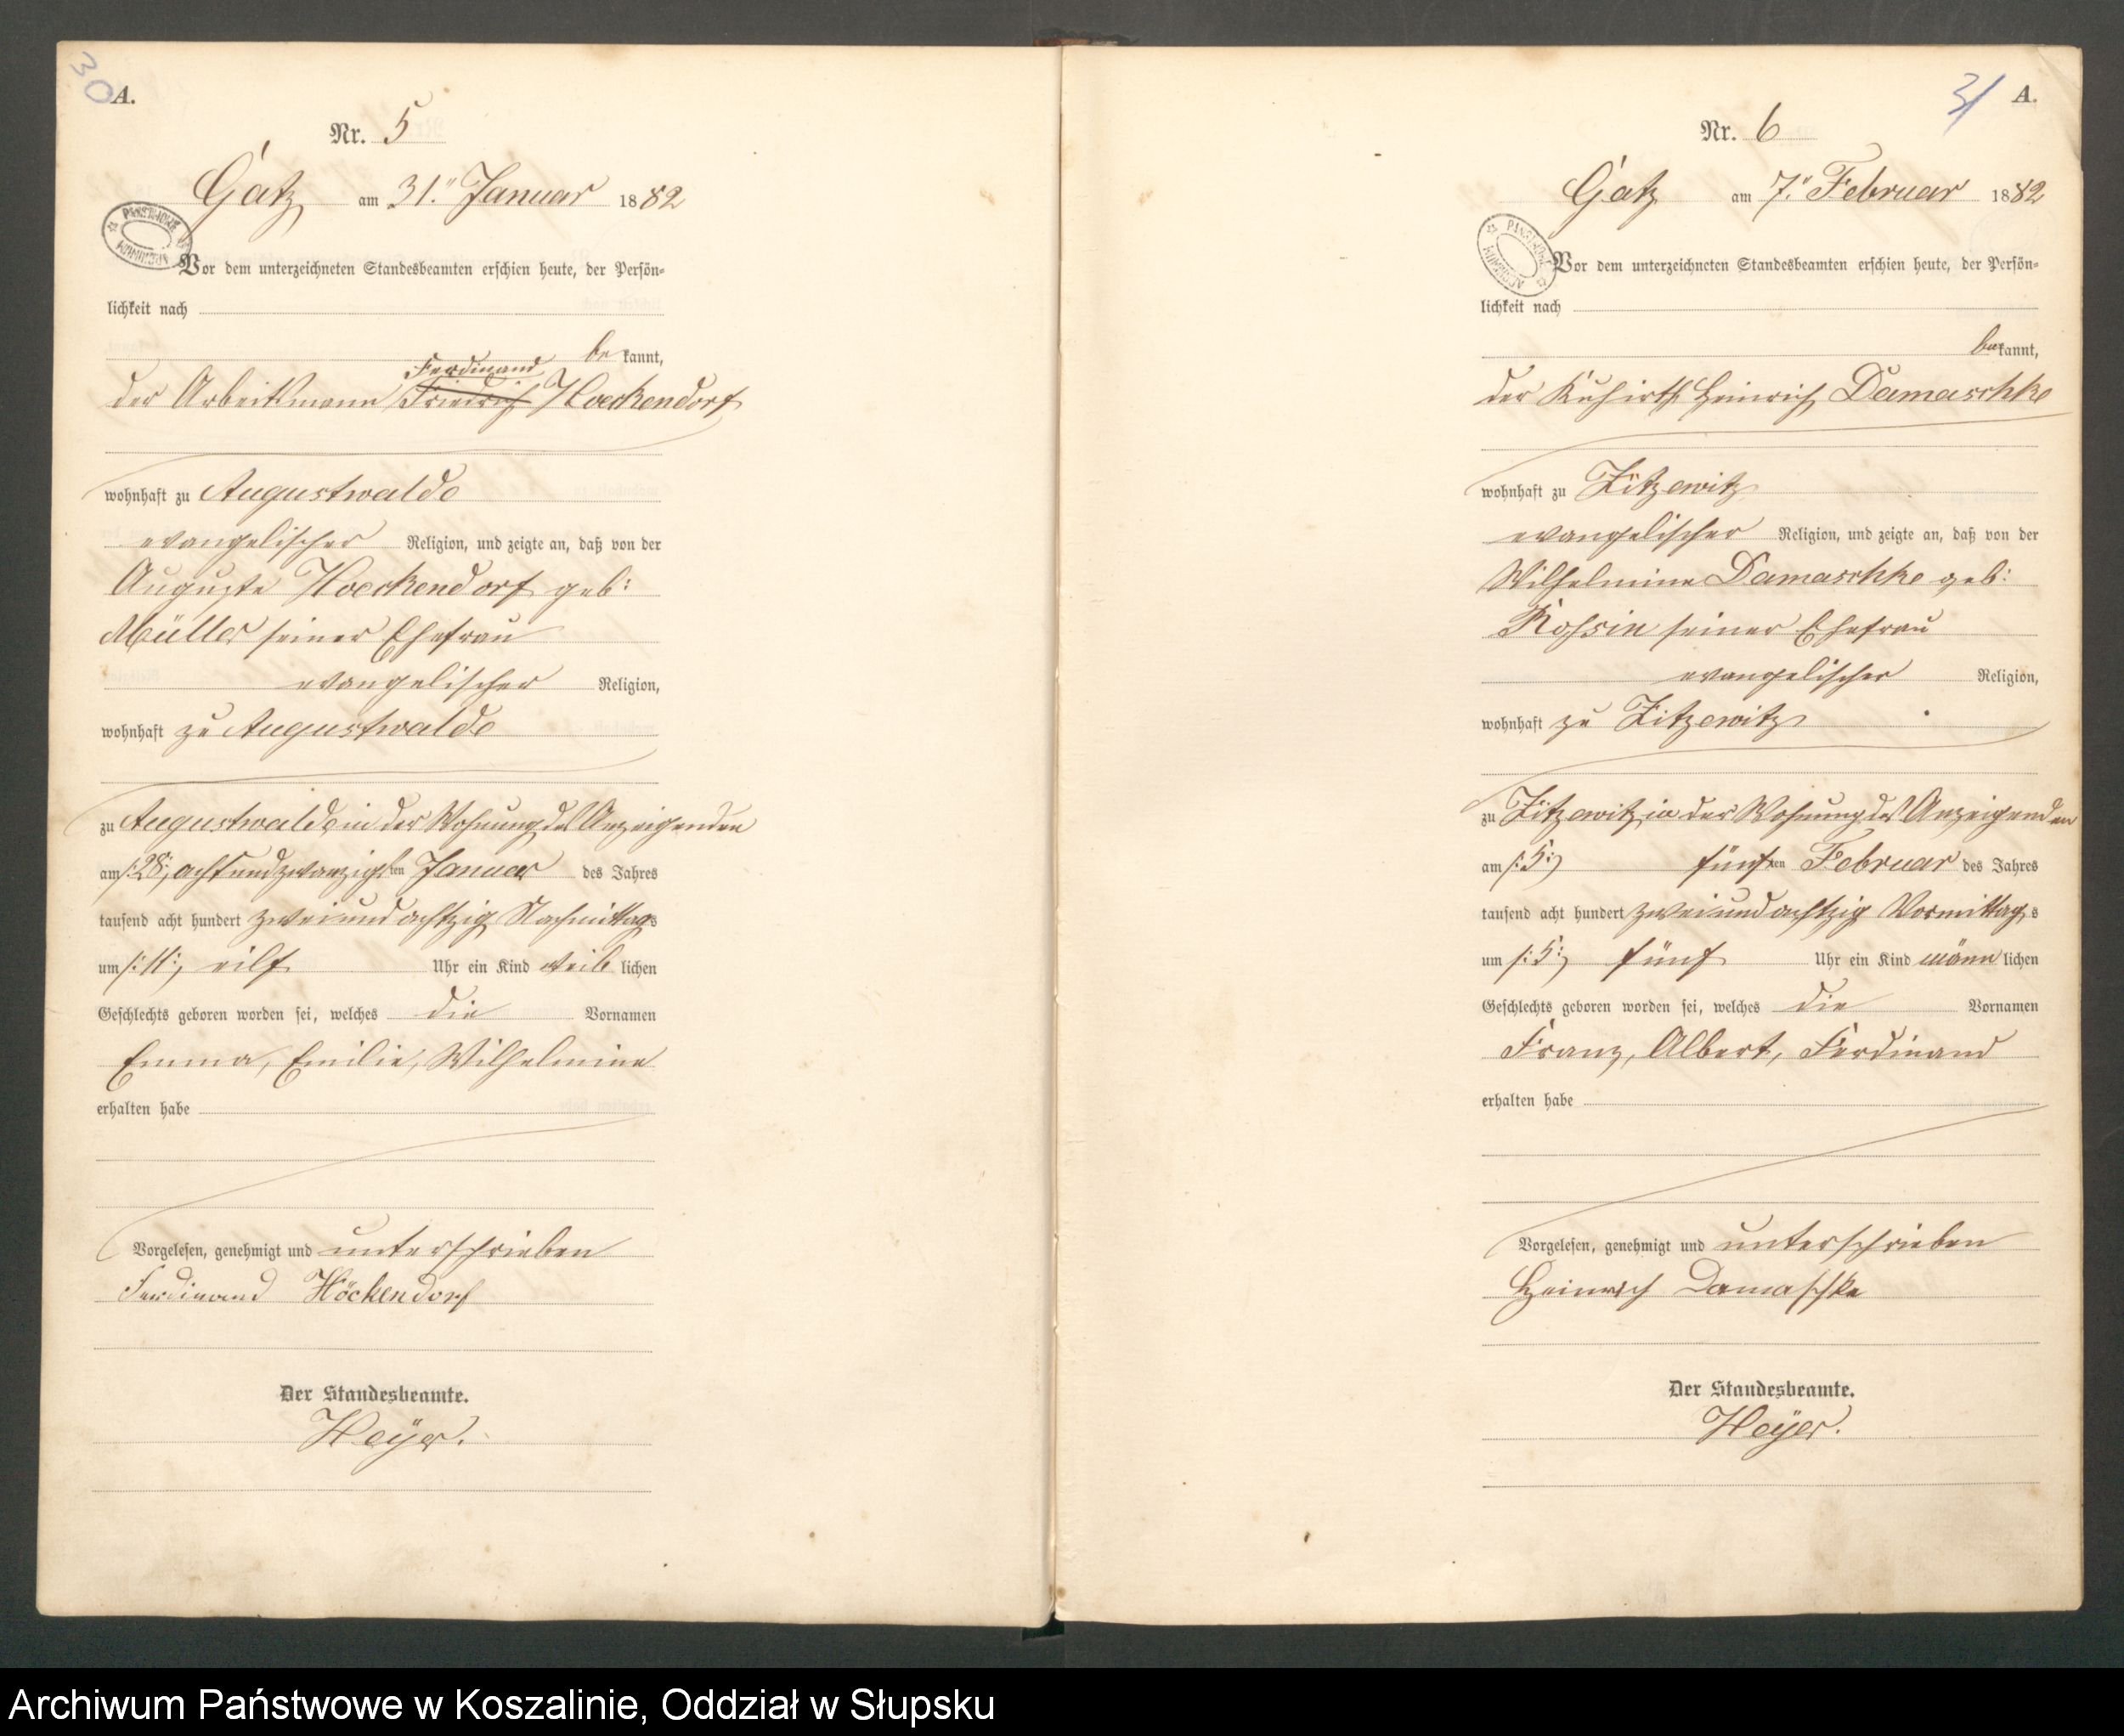 30
A.
Nr. 5
Gatz am 31. Januar 1882
PAŃSTWOWE ARCHIWUM
Vor dem unterzeichneten Standesbeamten erschien heute, der Persön-
lichkeit nach
bekannt,
Ferdinand
der Arbeitsmann Friedrich Hoeckendorf
wohnhaft zu Augustwalde
evangelischer Religion, und zeigte an, daß von der
Auguste Hoeckendorf geb:
Müller seiner Ehefrau
evangelischer Religion,
wohnhaft zu Augustwalde
zu Augustwalde in der Wohnung des Anzeigenden
am /:28:/ achtundzwanzigsten Januar des Jahres
tausend acht hundert zweiundachtzig Nachmittags
um /:11:/ eilf Uhr ein Kind weiblichen
Geschlechts geboren worden sei, welches die Vornamen
Emma, Emilie, Wilhelmine
erhalten habe
Vorgelesen, genehmigt und unterschrieben
Ferdinand Höckendorf
Der Standesbeamte.
Heyer.
31
A.
Nr. 6
Gatz am 7. Februar 1882
PAŃSTWOWE ARCHIWUM
Vor dem unterzeichneten Standesbeamten erschien heute, der Persön-
lichkeit nach
bekannt,
der Kuhirth Heinrich Damaschke
wohnhaft zu Zitzewitz
evangelischer Religion, und zeigte an, daß von der
Wilhelmine Damaschke geb:
seiner Ehefrau
evangelischer Religion,
wohnhaft zu Zitzewitz
zu Zitzewitz in der Wohnung des Anzeigenden
am /:5:/ fünften Februar des Jahres
tausend acht hundert zweiundachtzig Vormittags
um /:5:/ fünf Uhr ein Kind männlichen
Geschlechts geboren worden sei, welches die Vornamen
Franz, Albert, Ferdinand
erhalten habe
Vorgelesen, genehmigt und unterschrieben
Heinrich Damaschke
Der Standesbeamte.
Heyer.
Archiwum Państwowe w Koszalinie, Oddział w Słupsku